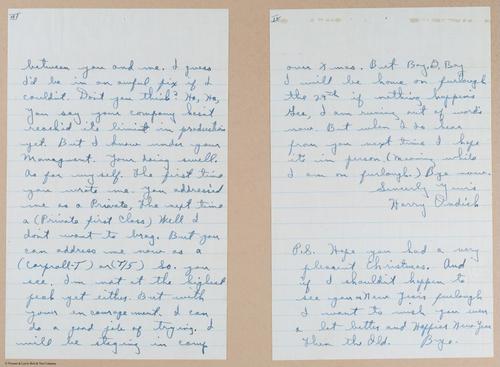 VIII
between you and me. I guess
I'd be in an awful fix if I
couldn't. Don't you think? Ho, Ho,
You say your company hasit
reach'd it's limit in production
yet. But I know under your
Managment. Your doing swell.
As for myself. The first time
you wrote me. You addressed
me as a Private, The next time
a (Private first Class) Well I
don't want to brag. But you
can address me now as a
(Corprall-T) or (T/5) So. you
see. I'm not at the highest
peak yet either. But with
your incouragement. I can
do a good job of trying. I
will be staying in camp
IX
over Xmas. But Boy, O, Boy
I will be home on furlough
the 29th if nothing happins
Gee, I am runing out of words
now. But when I do hear
from you next time I hope
its in person (Meaning while
I am on furlough.) Bye now.
Sincerly Yours
Harry
P.S. Hope you had a very
pleasent Christmas. And
if I shouldn't happen to
see you on New Years furlough
I want to wish you
a lot better and Happier New Year
Then the Old. Bye.